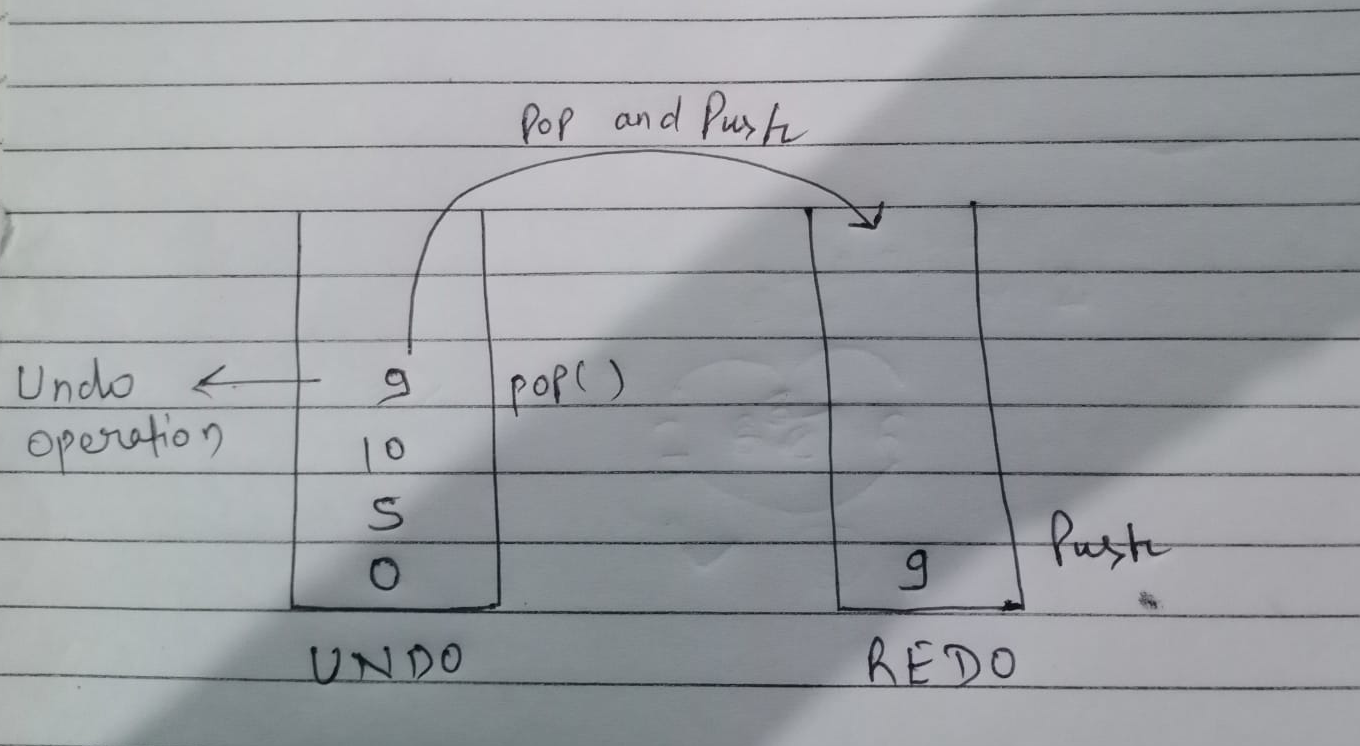 Pop and Push
Undo
operation
9
pop()
10
5
0
9
Push
UNDO
REDO